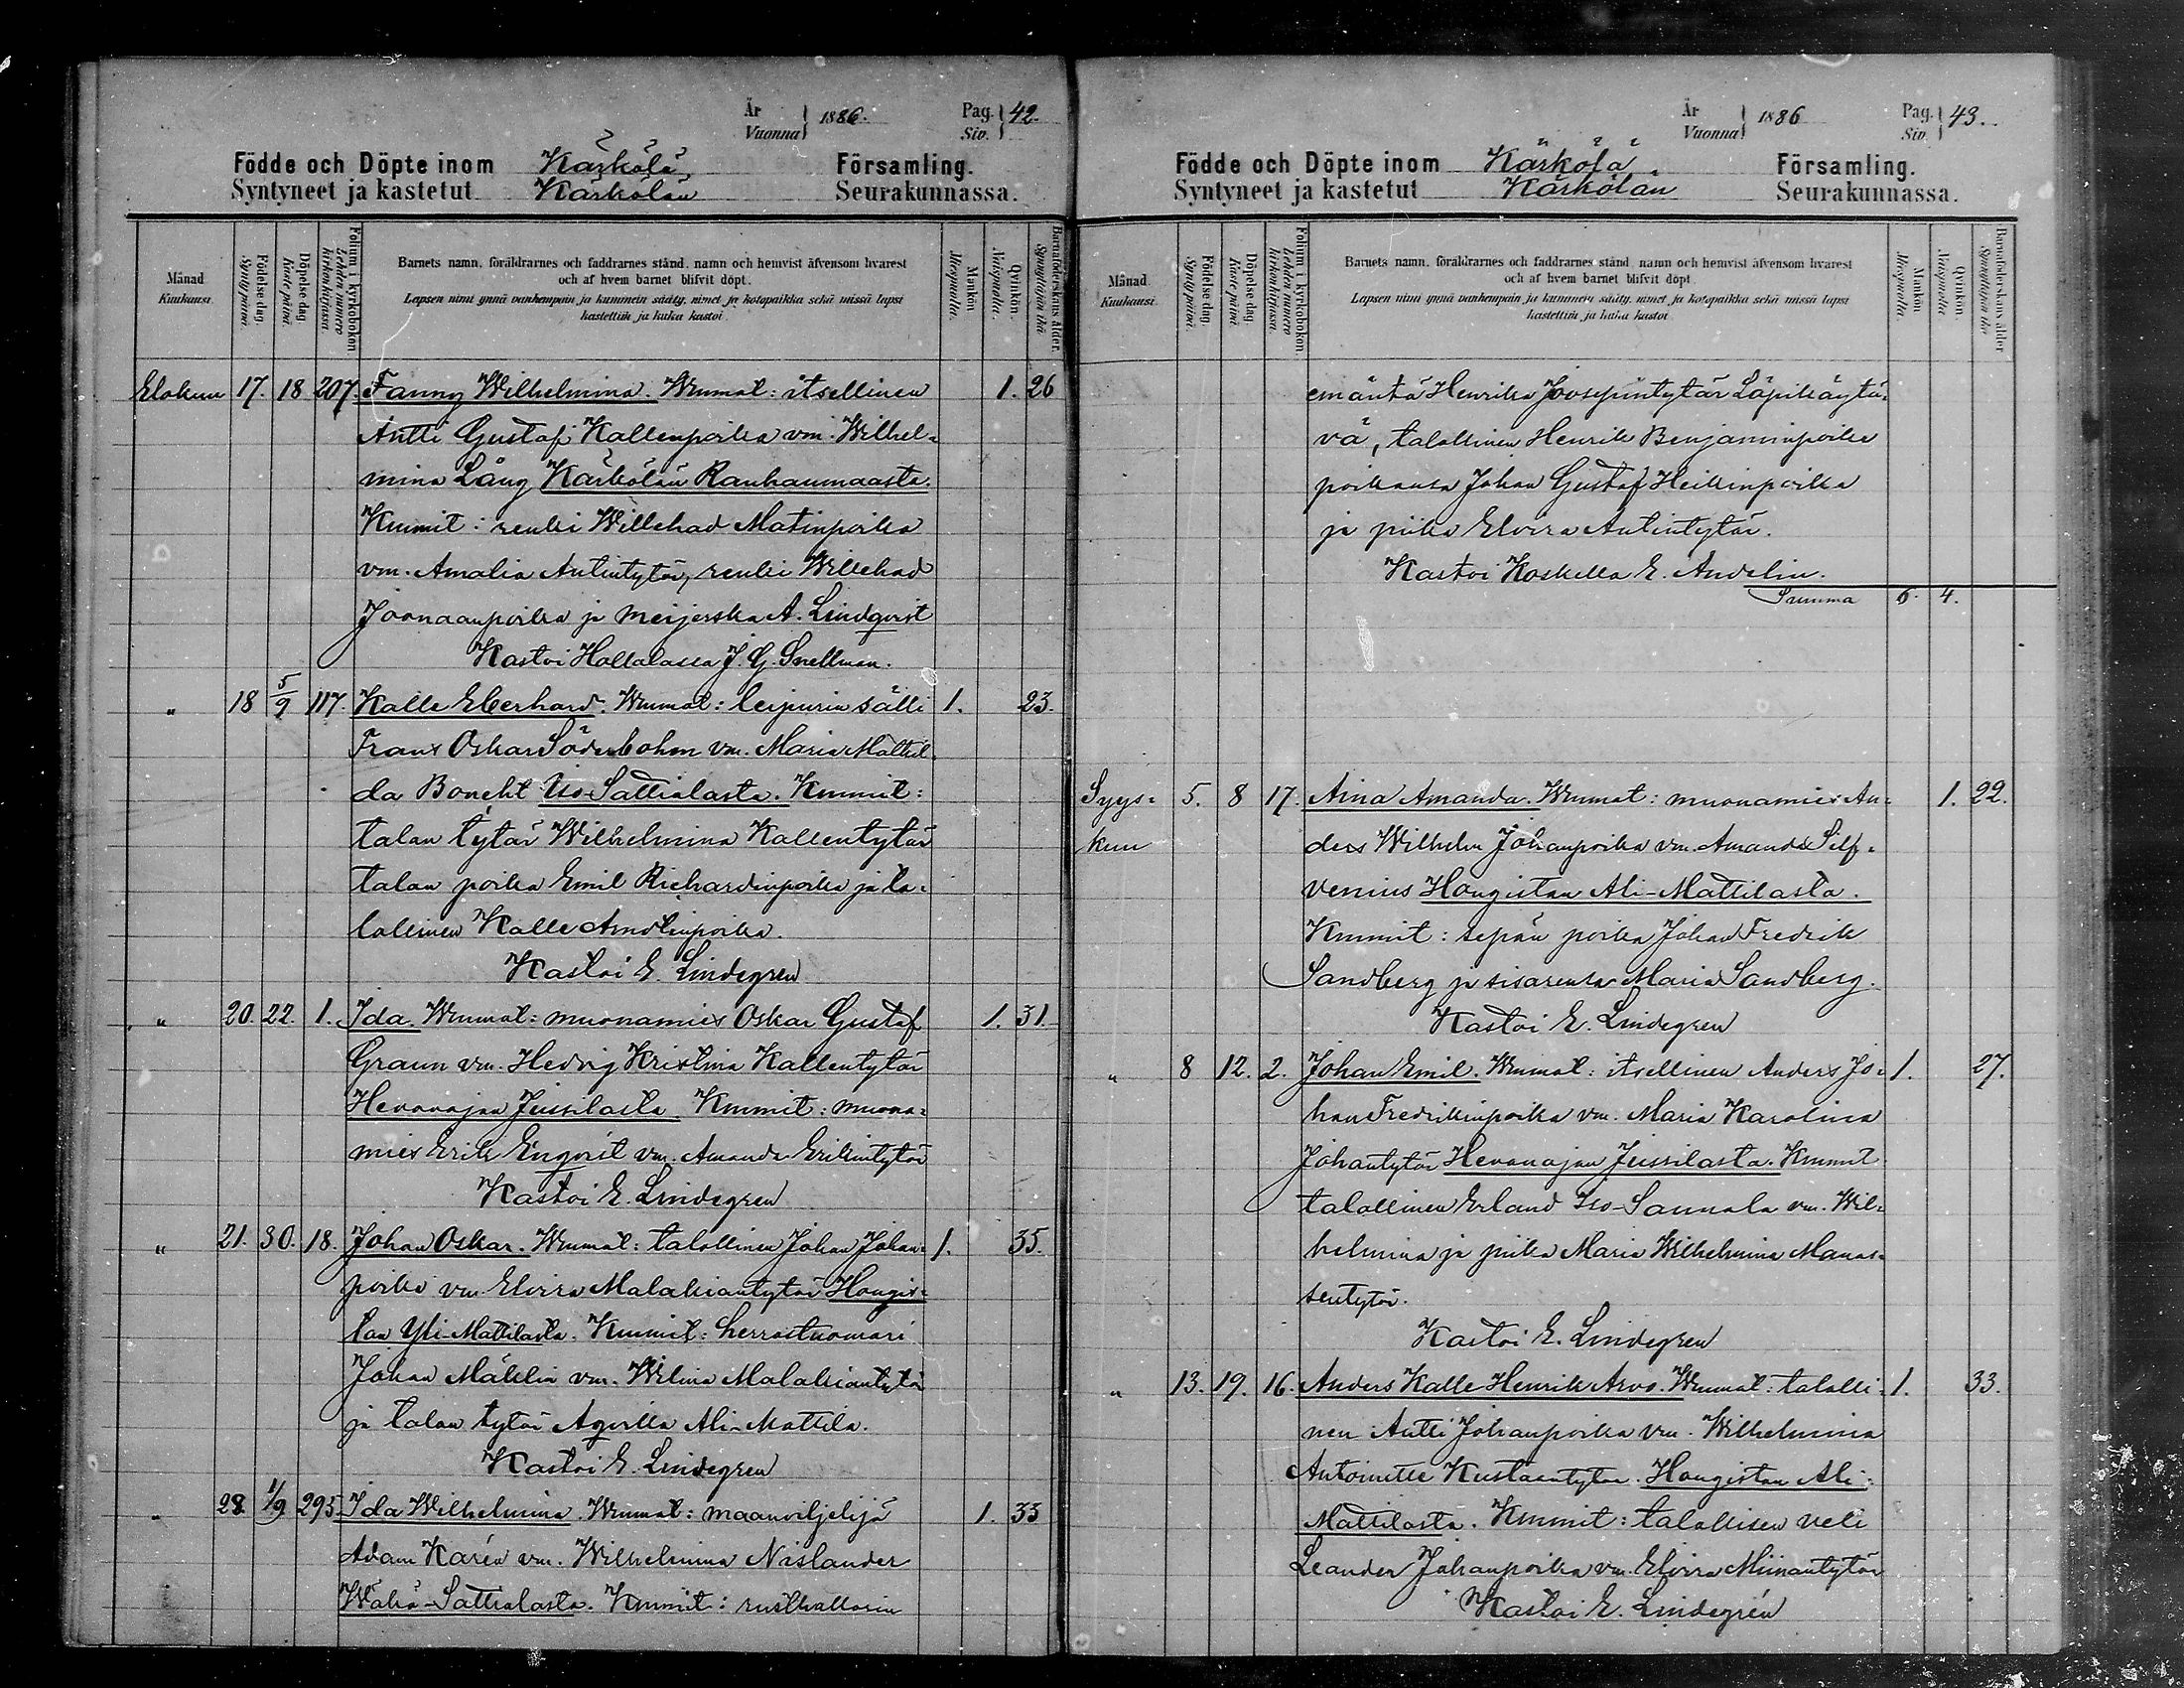 År Vuonna } 1886. Pag. Siv. } 42.
Födde och Döpte inom Kärkölä Församling.
Syntyneet ja kastetut Kärkölän Seurakunnassa.
Månad Kuukausi.
Födelse dag Synty päivä.
Döpelse dag Kaste päivä.
Folium i kyrkoboken Lehden numero kirkonkirjassa.
Barnets namn, föräldrarnes och faddrarnes stånd, namn och hemvist äfvensom hvarest
och af hvem barnet blifvit döpt.
Lapsen nimi ynnä vanhempain ja kummein sääty, nimet ja kotopaikka sekä missä lapsi
kastettiin ja kuka kastoi
Mankön Miespuolta.
Qvinkön. Naispuolta.
Barnaföderskans ålder. Synnyttäjän ikä
Elokuu 17. 18 207. Fanny Wilhelmina. Wmmat: itsellinen 1. 26
Antti Gustaf Kallenpoika vm. Wilhel-
mina Lång Kärkölän Rauhanmaasta.
Kmmit: renki Willehad Matinpoika
vm. Amalia Antintytär, renki Willehad
Joonaanpoika ja meijerska A. Lindqvist
Kastoi Hollolassa J. G. Snellman.
" 18 5/9 117. Kalle Eberhard. Wmmat: leipurin sälli 1. 23.
Frans Oskar Söderbohm vm. Maria Mathil-
da Boucht Iso-Sattialasta. Kmmit:
talan tytär Wilhelmina Kallentytär
talan poika Emil Richardinpoika ja ta-
lollinen Kalle Arnoltinpoika.
Kastoi E. Lindegren
" 20. 22. 1. Ida. Wmmat: muonamies Oskar Gustaf 1. 31.
Graun vm. Hedvig Kristina Kallentytär
Hevonojan Jussilasta Kmmit: muona-
mies Erik Engvist vm. Amanda Erikintytär
Kastoi E. Lindegren
" 21. 30. 18. Johan Oskar. Wmmat: talollinen Johan Johan- 1. 35.
poika vm Elvira Malakiantytär Hongis-
ton Yli-Mattilasta. Kmmit: herrastuomari
Johan Mäkelin vm. Wilina Malakiantytär
ja talan tytär Aqvilla Ali-Mattila.
Kastoi E. Lindegren
" 28 1/9 295 Ida Wilhelmina. Wmmat: maanviljelijä 1. 33
Adam Karén vm. Wilhelmina Näslander
Wähä-Sattialasta. Kmmit: rusthollarin
År Vuonna } 1886 Pag. Siv. } 43.
Födde och Döpte inom Kärkölä Församling.
Syntyneet ja kastetut Kärkölän Seurakunnassa.
Månad Kuukausi.
Födelse dag Synty päivä.
Döpelse dag Kaste päivä.
Folium i kyrkoboken. Lehden numero kirkonkirjassa.
Barnets namn, föräldrarnes och faddrarnes stånd, namn och hemvist äfvensom hvarest
och af hvem barnet blifvit döpt
Lapsen nimi ynnä vanhempain ja kummein sääty, nimet ja kotopaikka sekä missä lapsi
kastettiin ja kuka kastoi
Mankön Miespuolta.
Qvinkön. Naispuolta.
Barnaföderskans ålder Synnyttäjän ikä
emäntä Henrika Joosepintytär Läpikäytä-
vä, talollinen Henrik Benjaminpoika
poikansa Johan Gustaf Heikinpoika
ja piika Elvira Antintytär.
Kastoi Koskella E. Andelin.
Summa 6. 4.
Syys- 5. 8 17. Aina Amanda. Wmmat: muonamies An- 1. 22.
kuu ders Wilhelm Johanpoika vm. Amanda Silf-
venius Hongiston Ali-Mattilasta.
Kmmit: sepän poika Johan Fredrik
Sandberg ja sisarensa Maria Sandberg.
Kastoi E. Lindegren
" 8 12. 2. Johan Emil. Wmmat: itsellinen Anders Jo- 1. 27.
han Fredrikinpoika vm. Maria Karolina
Johantytär Hevonojan Jussilasta. Kmmit
talollinen Erland Iso-Sannala vm. Wil-
helmina ja piika Maria Wilhelmina Manas-
sentytär.
Kastoi E. Lindegren
" 13. 19. 16. Anders Kalle Henrik Arvo. Wmmat: talolli- 1. 33.
nen Antti Johanpoika vm. Wilhelmina
Antoinette Kustaantytär. Hongiston Ali-
Mattilasta. Kmmit: talollisen veli
Leander Johanpoika vm. Elvira Miinantytär
Kastoi E. Lindegrén